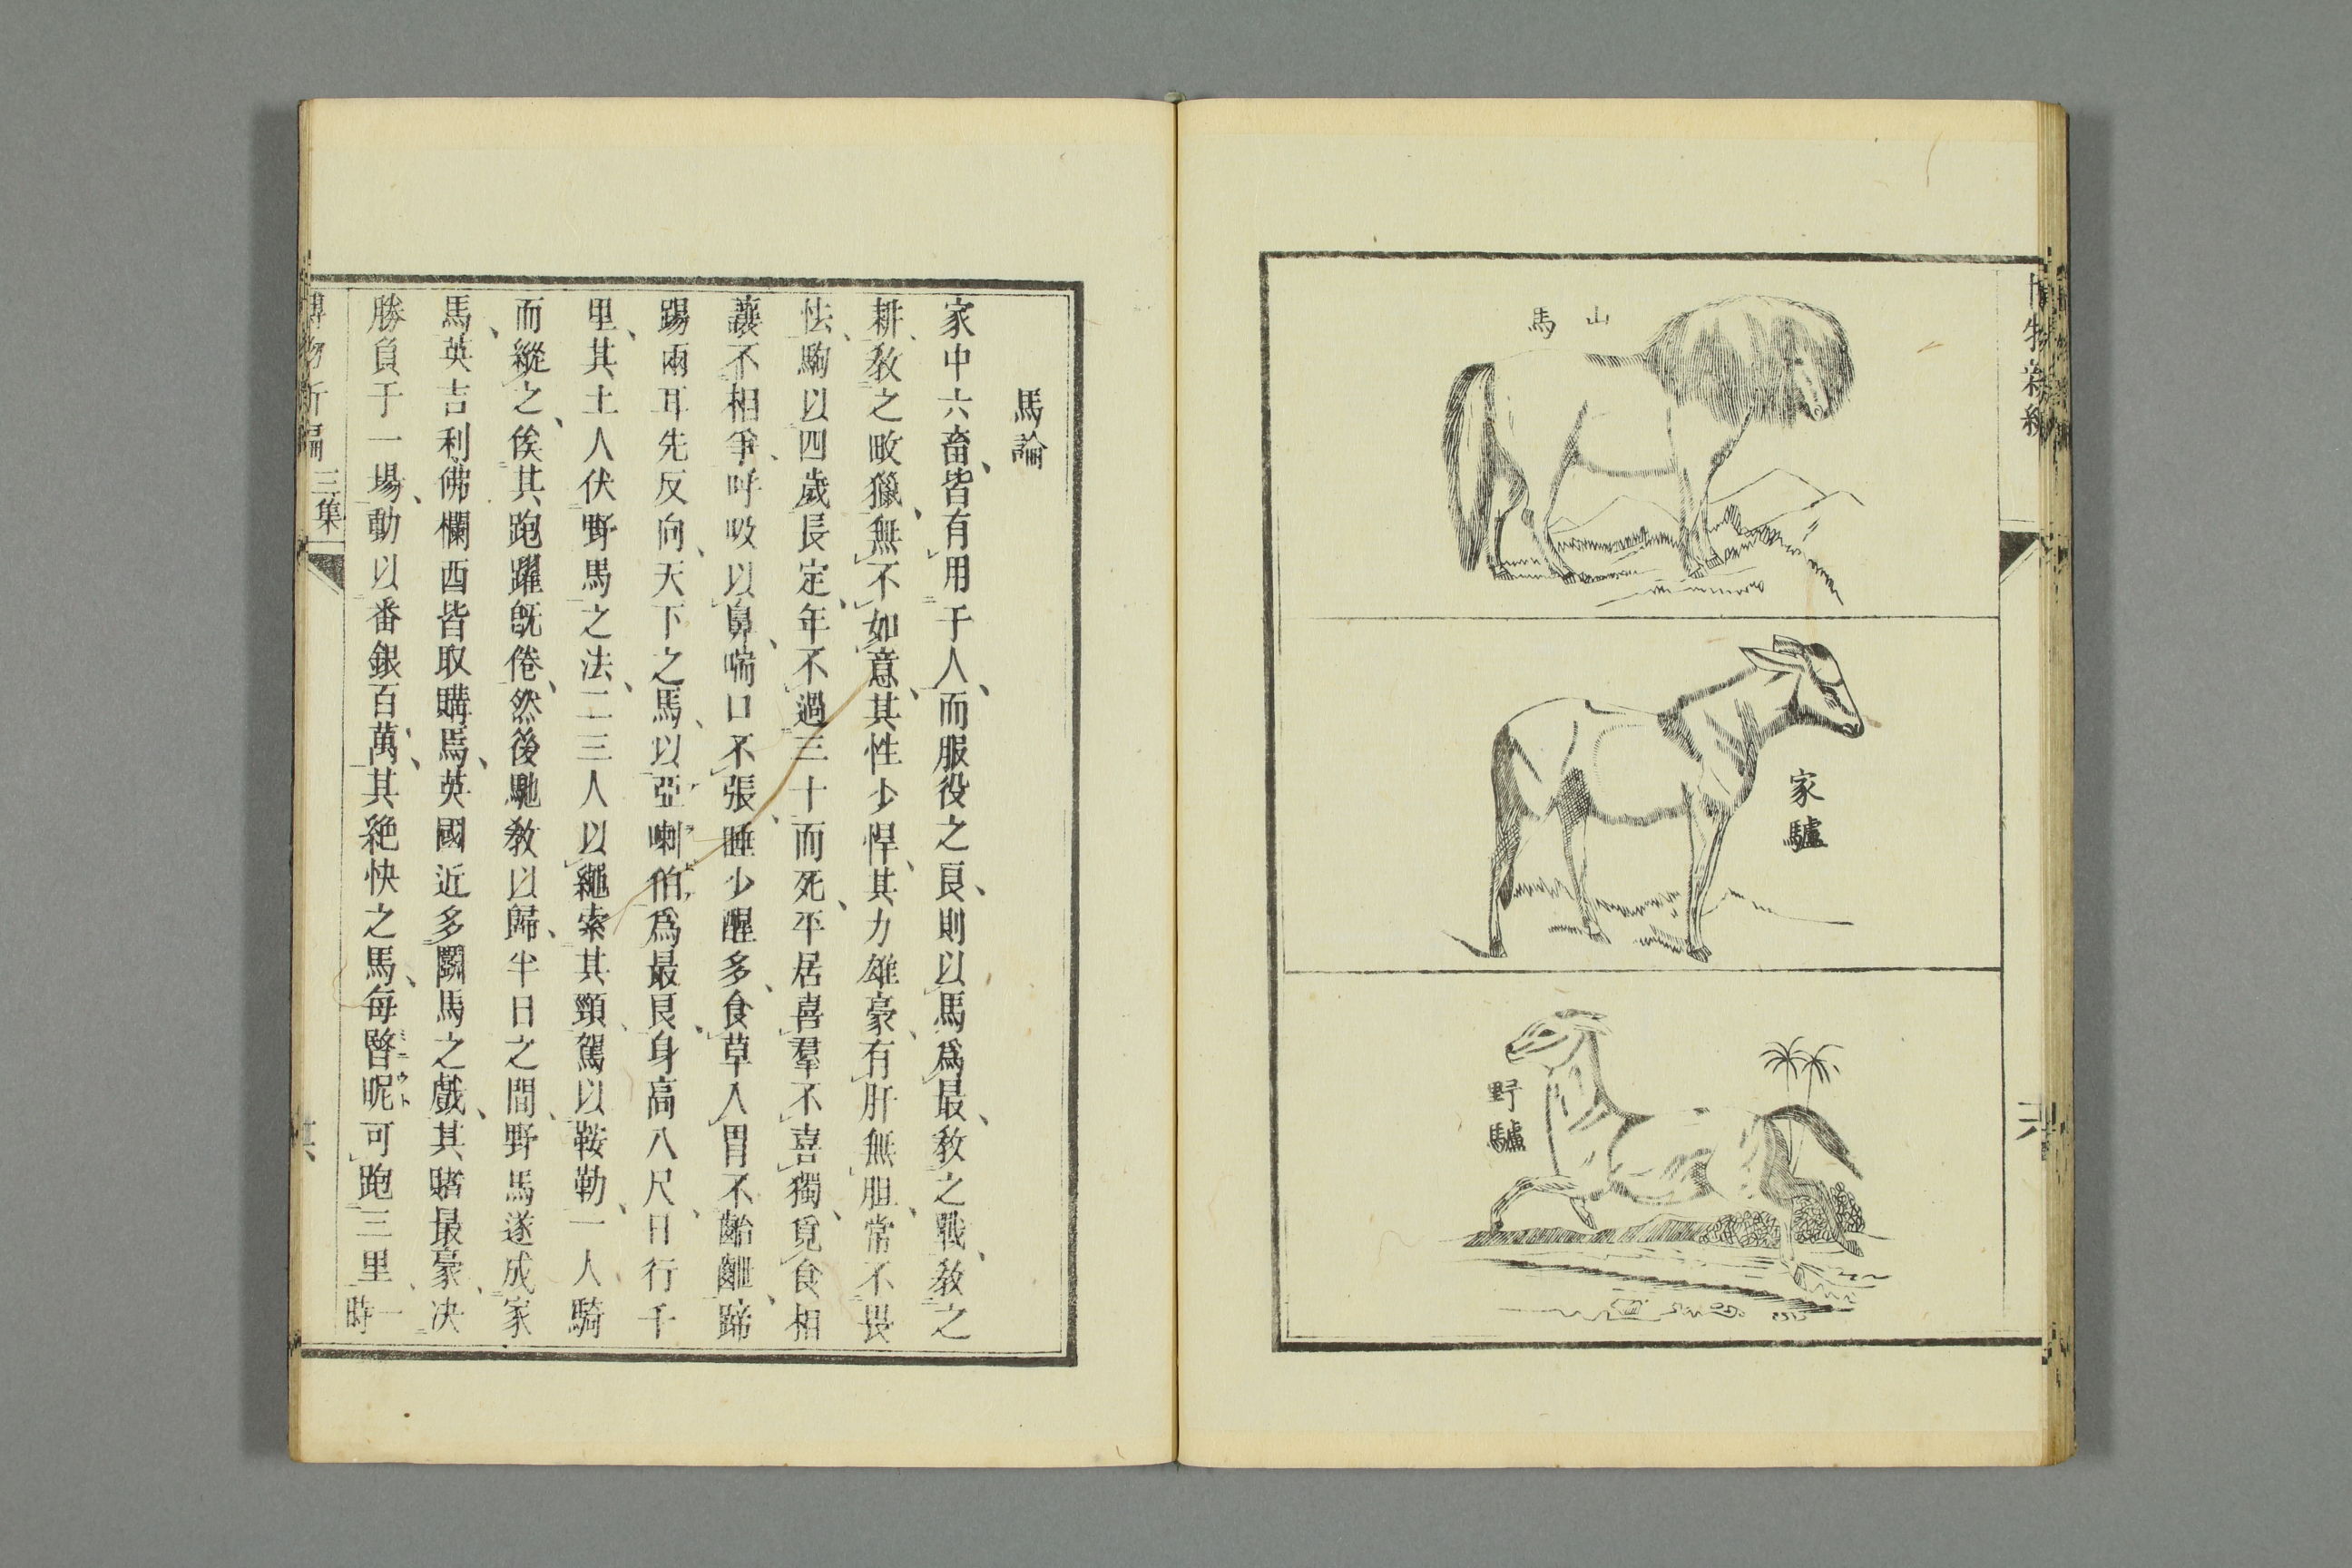 山馬
家驢
野驢
馬論
家中六畜、皆有用于人、而服役之良、則以馬爲最、教之戰、教之
耕、教之畋獵、無不如意、其性少悍、其力雄豪、有肝無胆、常不畏
怯、駒以四歲長定、年不過三十而死、平居喜羣不喜獨、覓食相
讓、不相爭、呼吸以鼻、喘口不張、睡少醒多、食草入胃不齝齝、蹄
踢兩耳先反向、天下之馬、以亞喇伯爲最良、身高八尺、日行千
里、其土人伏野馬之法、二三人以繩索其頸、駕以鞍勒、一人騎
而縱之、俟其跑躍旣倦、然後馳教以歸、半日之間、野馬遂成家
馬、英吉利佛欄西皆取購焉、英國近多鬬馬之戲、其賭最豪、决
勝負于一場、動以番銀百萬、其絶快之馬、每瞖呢可跑三里、一時
博物新編 三集